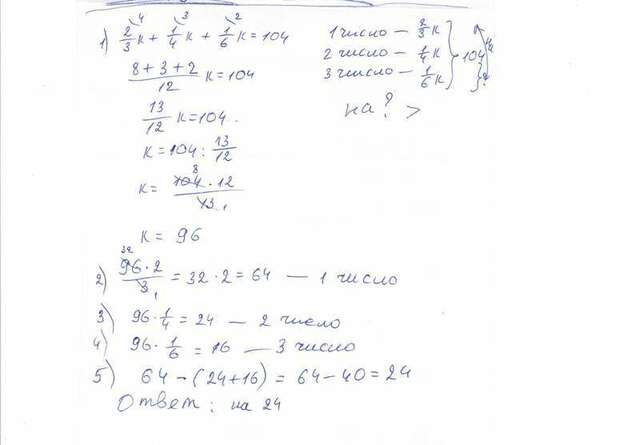 1) 2/3 к + 1/4 к + 1/6 к = 104
(8 + 3 + 2)/12 к = 104
13/12 к = 104.
к = 104 : 13/12
к = (104 · 12)/13
к = 96
1 число — 2/3 к
2 число — 1/4 к
3 число — 1/6 к
104
на ? >
2) (96 · 2)/3 = 32 · 2 = 64 — 1 число
3) 96 · 1/4 = 24 — 2 число
4) 96 · 1/6 = 16 — 3 число
5) 64 − (24 + 16) = 64 − 40 = 24
Ответ: на 24